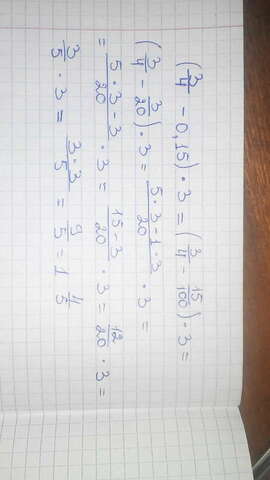 (3/4 - 0,15) · 3 = (3/4 - 15/100) · 3 =
(3/4 - 3/20) · 3 = (5·3-1·3)/20 · 3 =
= (5·3-3)/20 · 3 = (15-3)/20 · 3 = 12/20 · 3 =
3/5 · 3 = (3·3)/5 = 9/5 = 1 4/5